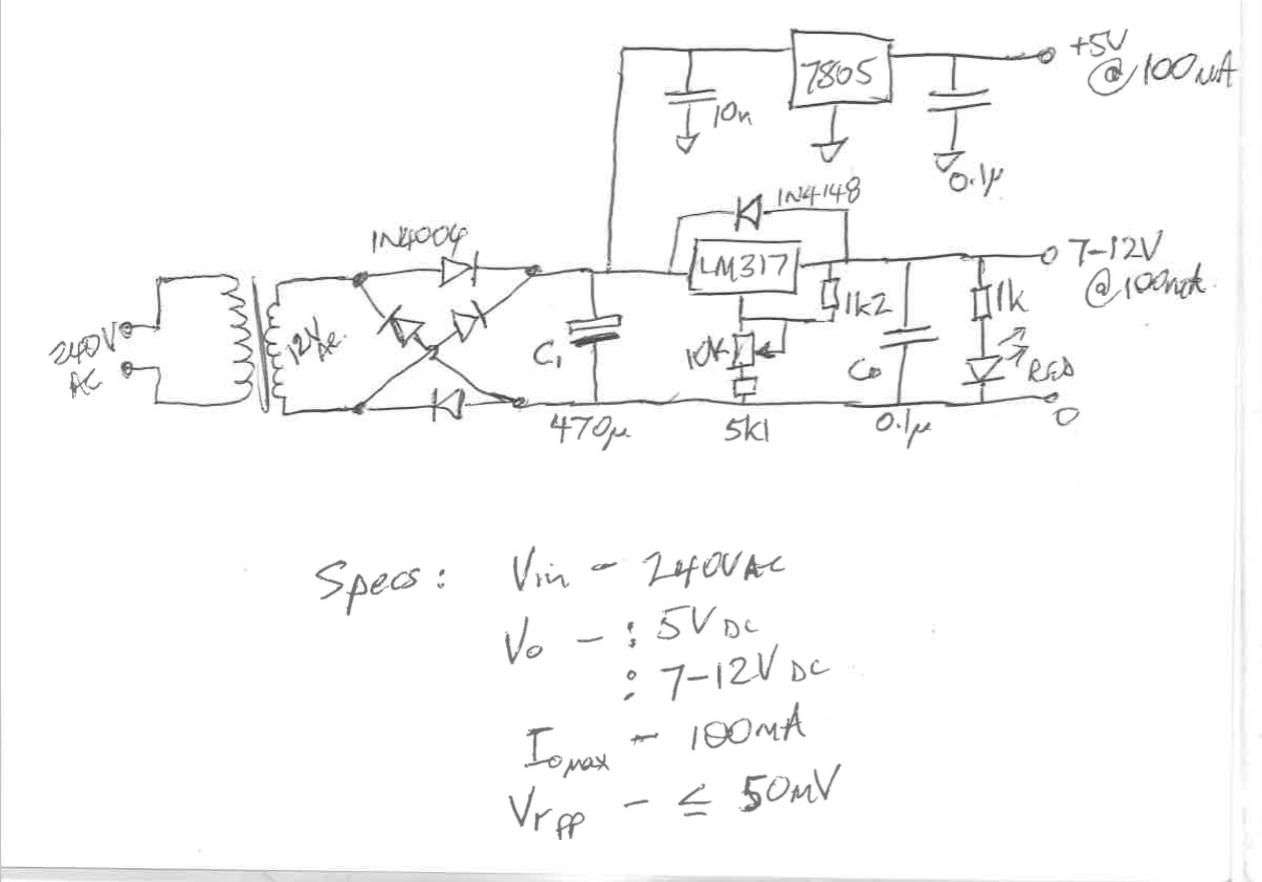 +5V
@ 100mA
7805
10n
0.1μ
1N4148
1N4004
LM317
7-12V
@ 100mA
1k2
1k
240V
AC
12VAC
C1
10k
Co
RED
0
470μ
5k1
0.1μ
Specs: Vin - 240VAC
Vo - : 5VDC
: 7-12VDC
Iomax - 100mA
Vrpp - ≤ 50mV